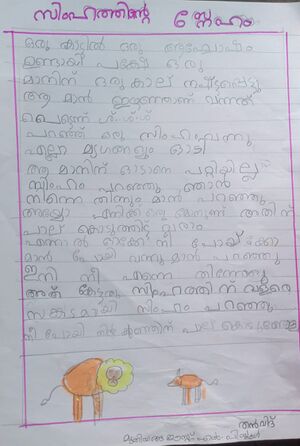 സിംഹത്തിന്റെ സ്നേഹം
ഒരു കാട്ടിൽ ഒരു ആഘോഷം
ഉണ്ടായി പക്ഷേ ഒരു
മാനിന് ഒരു കാല് നഷ്ടപ്പെട്ടു
ആ മാൻ ഇഴഞ്ഞാണ് വന്നത്
പെട്ടെന്ന്
പറഞ്ഞ് ഒരു സിംഹം വന്നു
എല്ലാ മൃഗങ്ങളും ഓടി
ആ മാനിന് ഓടാനെ പറ്റിയില്ല
സിംഹം പറഞ്ഞു ഞാൻ
നിന്നെ തിന്നും മാൻ പറഞ്ഞു
അയ്യോ എനിക്ക് ഒരു അതിന്
പാല് കൊടുത്തിട്ട് വരാം
എന്നാൽ ഓക്കേ നീ പോയ്ക്കോ
മാൻ പോയി വന്നു മാൻ പറഞ്ഞു
ഇനി നീ എന്നെ തിന്നോളൂ
അത് കേട്ടതു സിംഹത്തിന് വളരെ
സങ്കടമായി സിംഹം പറഞ്ഞു
നീ പോയി നിൻ കുഞ്ഞിന് പാല്
തൻവിദ്